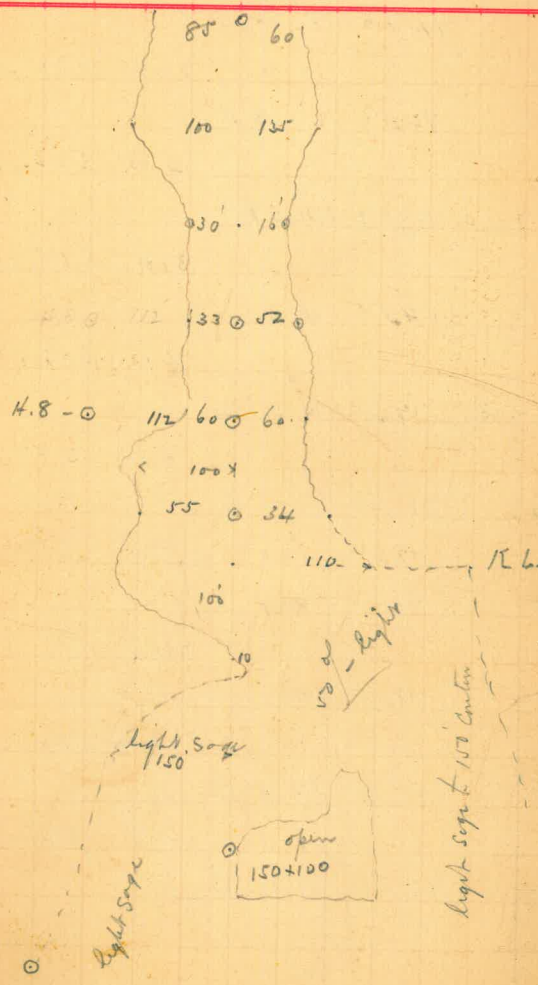 85 60
100 135
30' 16'
33 52
H.8 - 112 60 60
100 x
55 34
110 -
100
10
- light
light Sage
150
open
150+100
light Sage
light Sage to 150' Contour